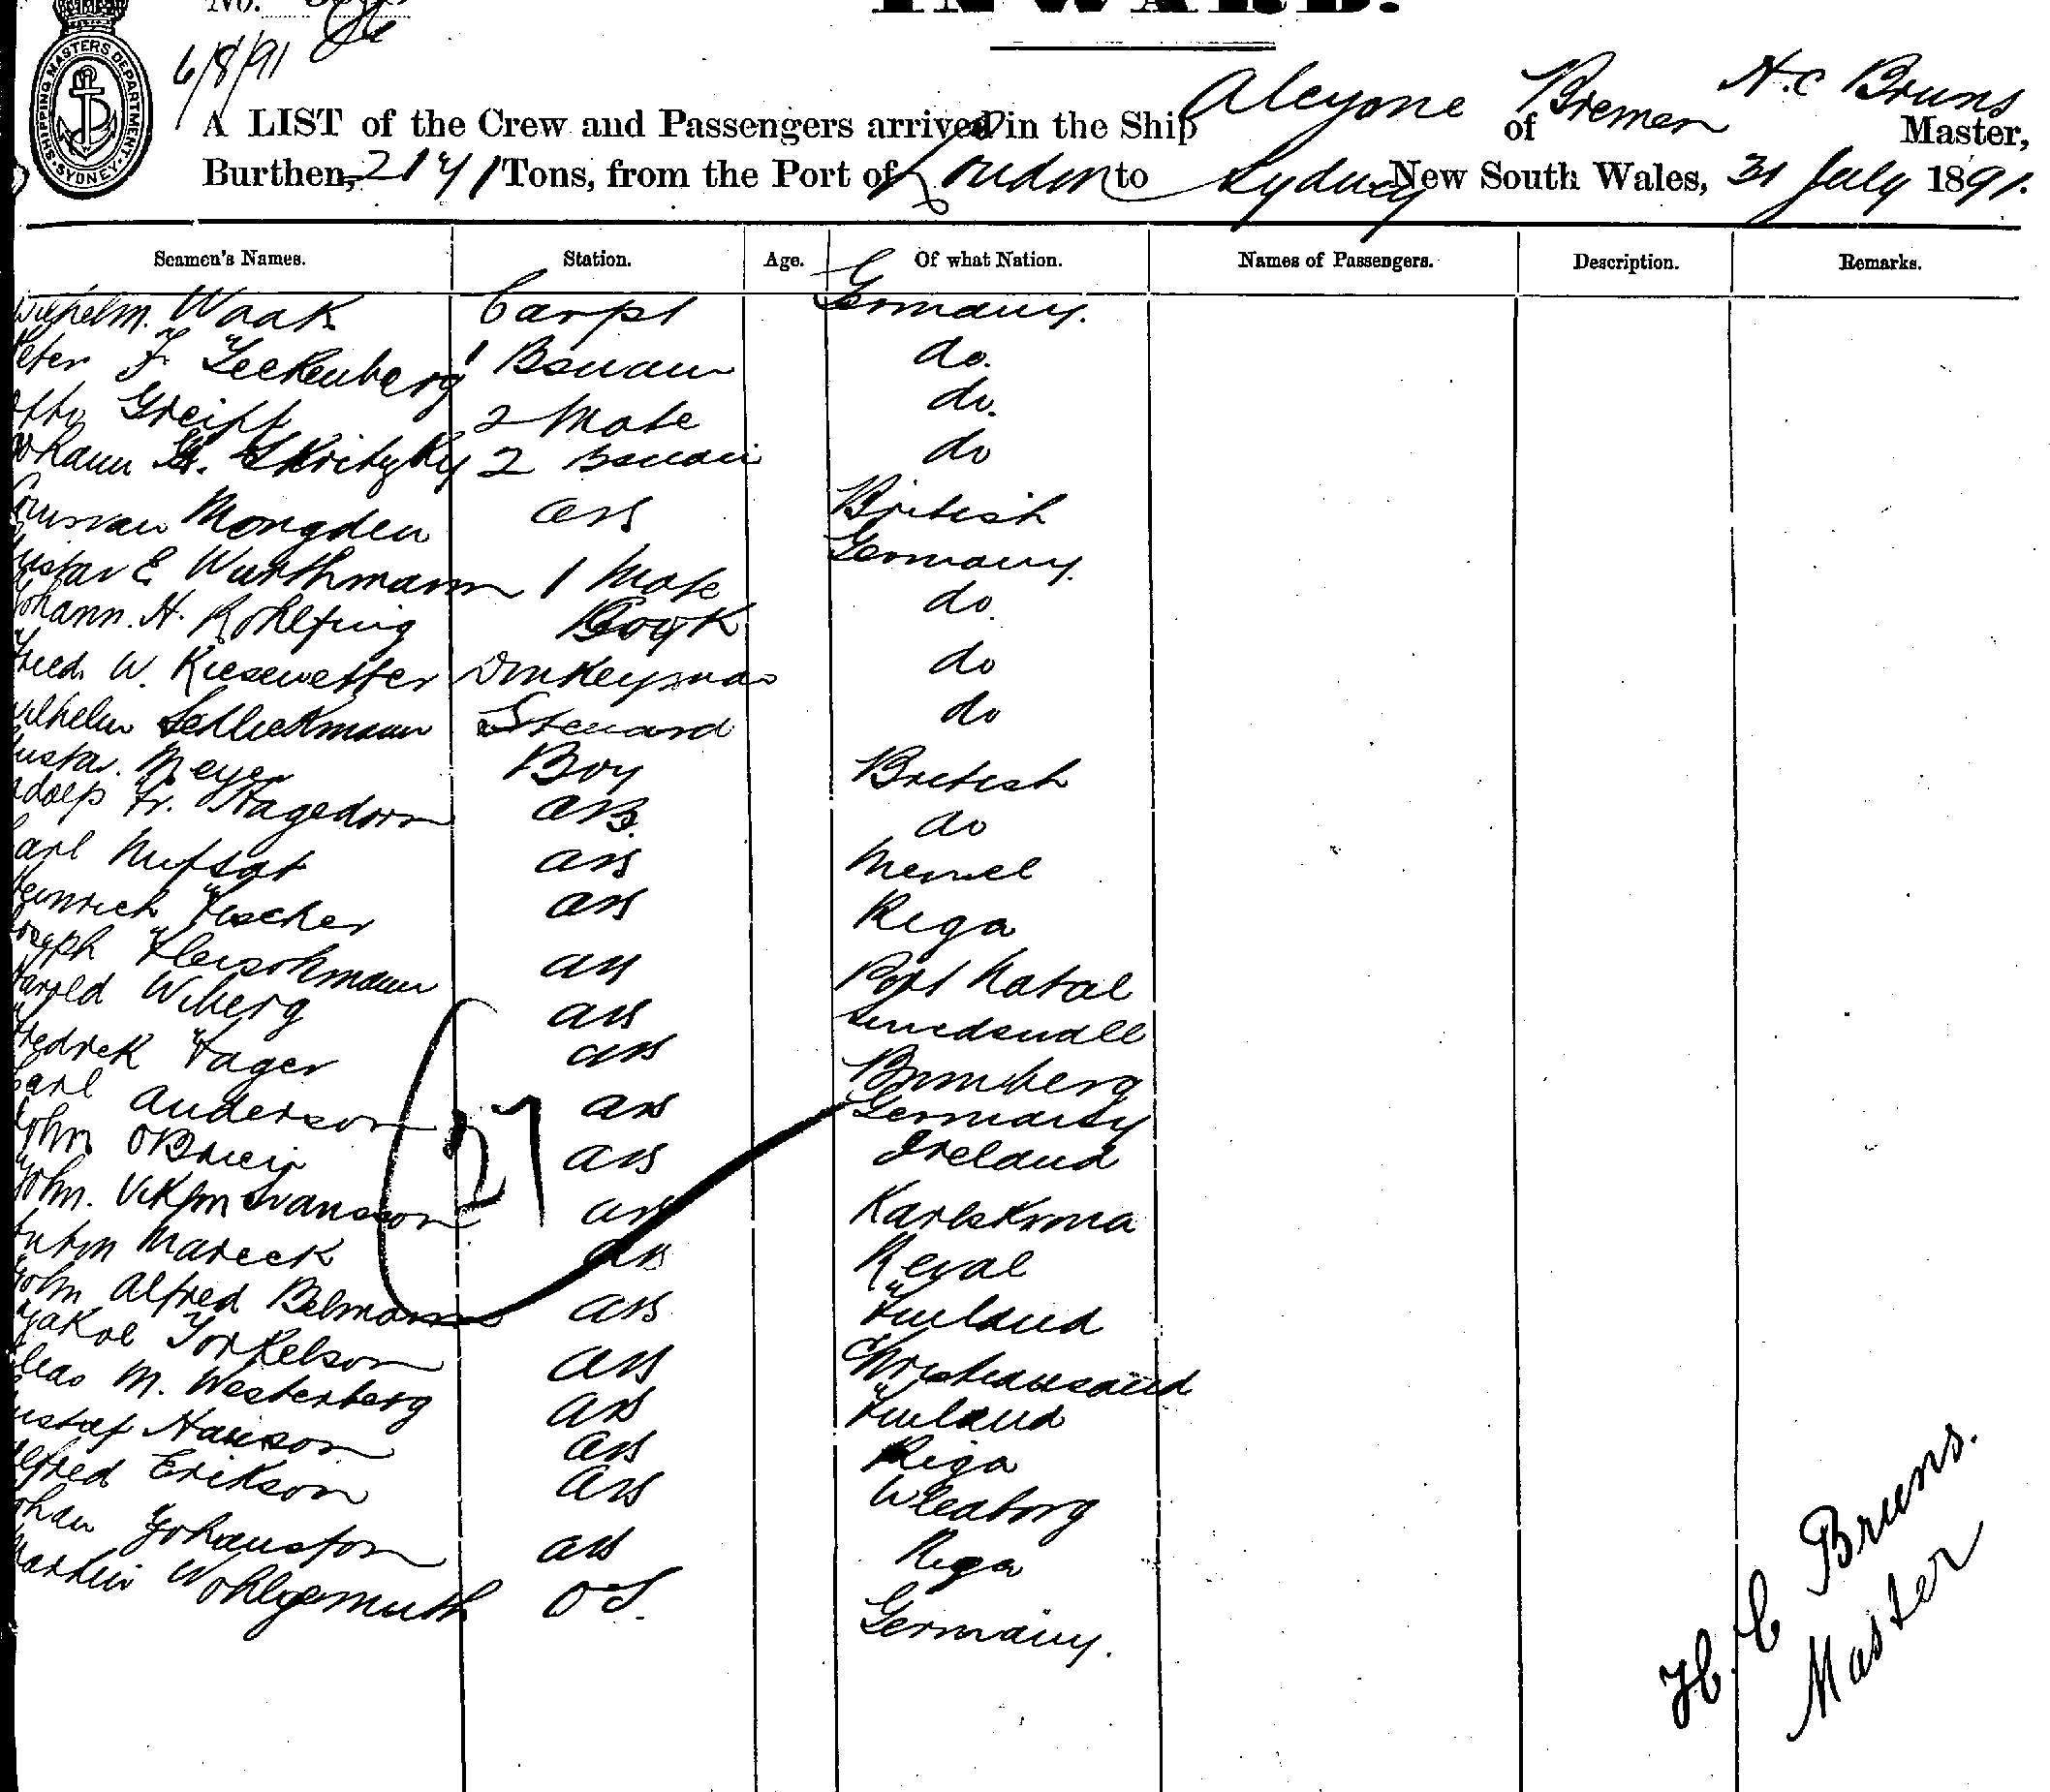 No.
INWARD.
6/8/91
SHIPPING MASTERS DEPARTMENT. SYDNEY.
A LIST of the Crew and Passengers arrived in the Ship Alcyone of Bremen H.C Bruns Master,
Burthen, 2141 Tons, from the Port of London to Sydney New South Wales, 31 July 1891.
Seamen's Names. Station. Age. Of what Nation. Names of Passengers. Description. Remarks.
Wilhelm. Waak Carpt Germany.
Peter F. 1 do.
Otto Greift 2 Mate do.
Johann 2 do
Mongden AB British
Gustav E Wurthmann 1 Mate Germany.
Johann. H. Rohlfing Cook do.
Fried. W. Kiesewetter Donkeyman do
Wilhelm Schliekmann Steward do
Gustav. Meyer Boy British
Adolp Fr. Hagedorn AB. do
Carl AB Memel
Heinrich Fischer AB Riga
Joseph Fleischmann AB Port Natal
Harold Wiberg AB
Fredrek Fager AB
Carl Anderson AB Germany
John OBrien AB Ireland
John. Svansson AB Karlskrona
Anton Mareck AB Reval
John Alfred Belmann AB Finland
Jakob Torkelson AB Christiansand
Elias M. Westerberg AB Finland
Gustaf Hanson AB Riga
Alfred Erikson AB Uleaborg
Johan Johansson AB Riga
Martin Wohlgemuth OS. Germany.
27
H. C Bruns.
Master